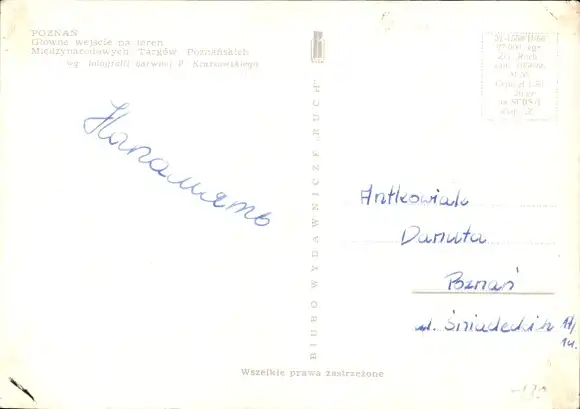 POZNAŃ
Główne wejście na teren
Międzynarodowych Targów Poznańskich
wg fotografii barwnej P. Kraszewskiego
Напамять
BIURO WYDAWNICZE „RUCH"
Antkowiak
Danuta
Poznań
ul. Śniadeckich 17/
14.
Wszelkie prawa zastrzeżone